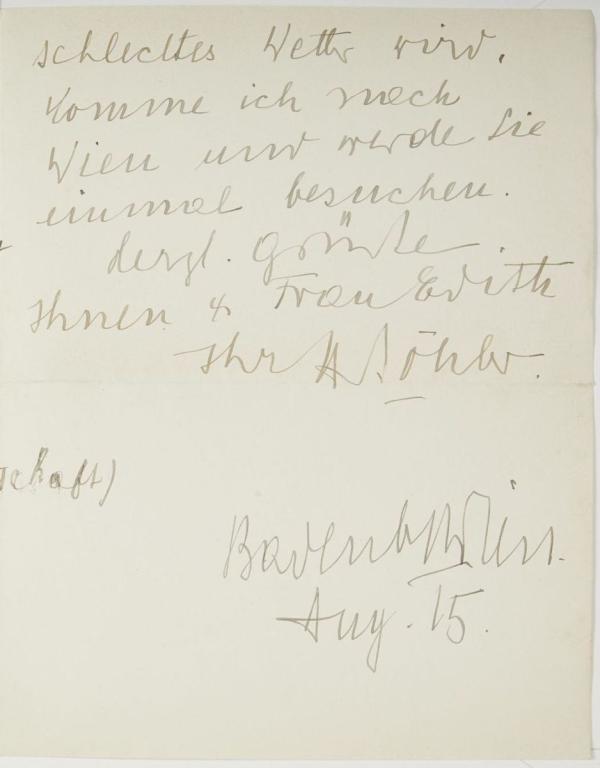 schlechtes Wetter wird,
komme ich nach
Wien und werde Sie
einmal besuchen.
Herzl. Grüße
Ihnen & Frau Edith
Ihr H Böhler.
schaft)
Baden b/Wien.
Aug. 15.